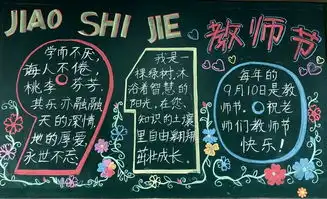 JIAO SHI JIE
教师节
学而不厌,
诲人不倦,
桃李 芬芳.
其乐亦融融
天的深情,
地的厚爱,
永世不忘.
我是一
棵绿树,沐
浴着智慧的
阳光,在您
知识的土壤
里自由翱翔
茁壮成长.
每年的
9月10日是教
师节.祝老
师们教师节
快乐!